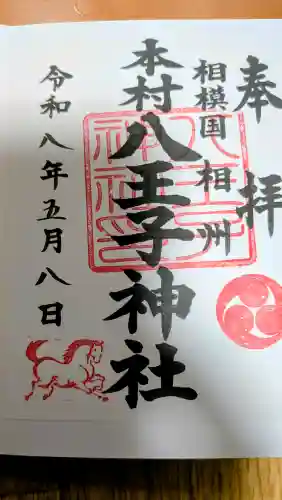 奉拝
相模国 相州
本村八王子神社
令和八年五月八日